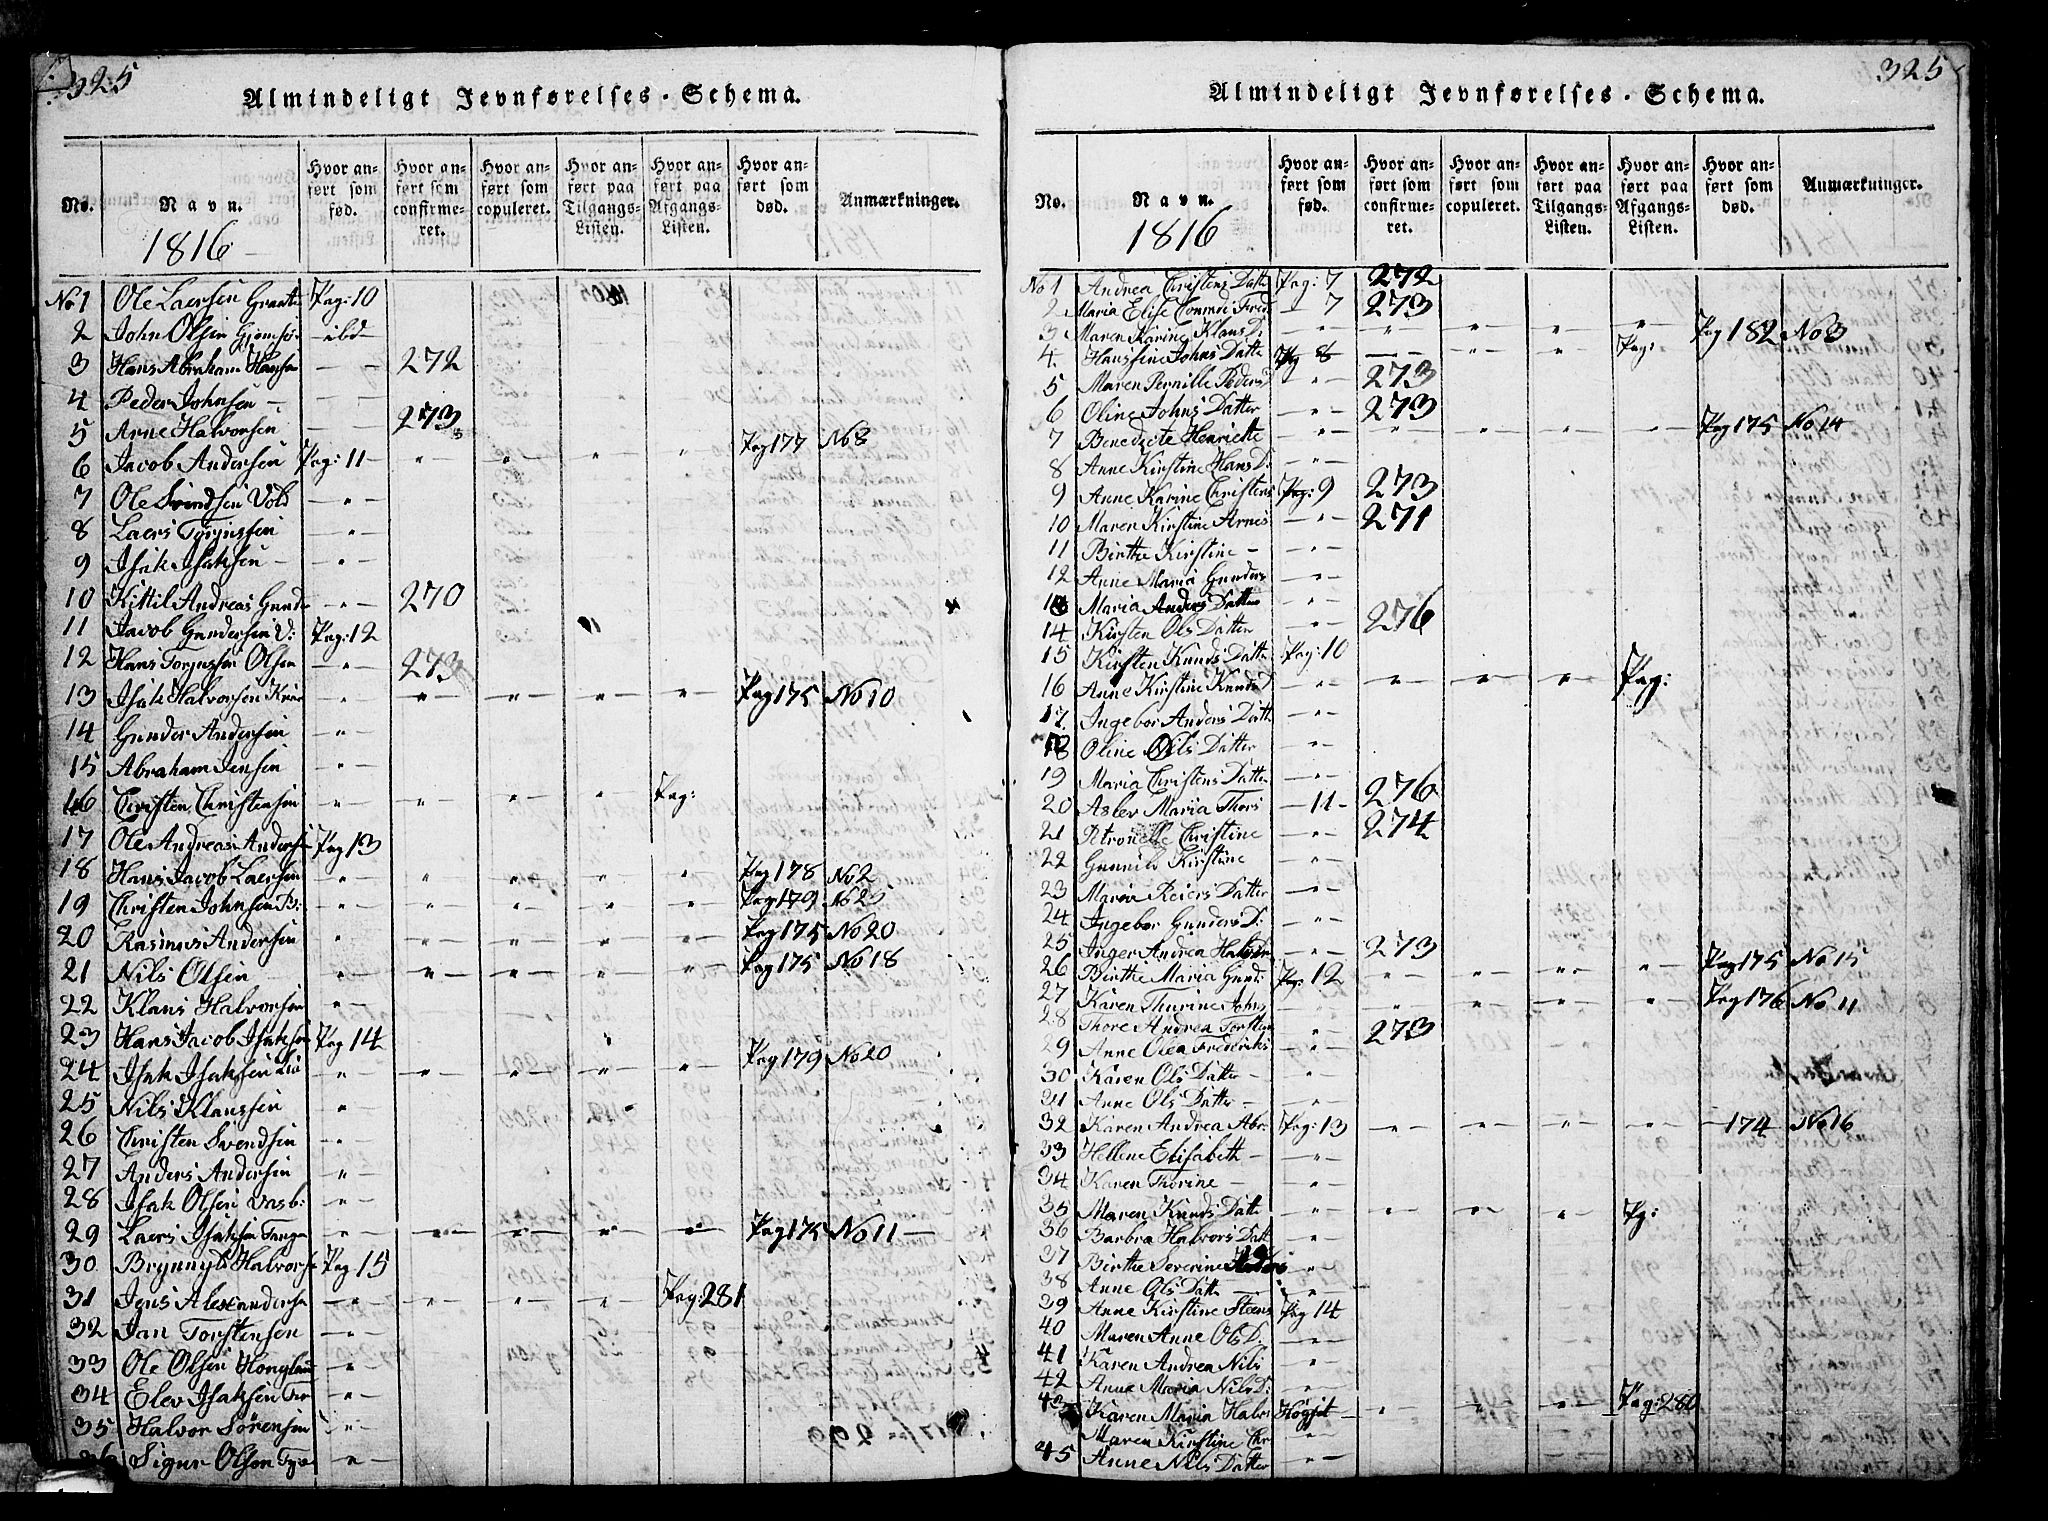 325
Almindeligt Jevnførelses-Schema.
No. Navn. 1816 Hvor anført som fød. Hvor anført som confirmeret. Hvor anført som copuleret. Hvor anført paa Tilgangs-Listen. Hvor anført paa Afgangs-Listen. Hvor anført som død. Anmærkninger.
No 1 Ole Laersen Pag: 10
2 John Olsen — ibd —
3 Hans Abraham Hansen — — 272
4 Peder Johnsen — — —
5 Arne Halvorsen — 273
6 Jacob Andersen Pag: 11 — " — " — " — " — Pag 177 No 8
7 Ole Svendsen Vold — " —
8 Laers Torjussen — " —
9 Isak Isaksen — — " —
10 Kittil Andreas Gund — " — 270
11 Jacob Gundersen V: Pag: 12
12 Hans Torjussen Olsen — " — 273
13 Isak Halvorsen " — " — " — " — " — Pag 175 No 10
14 Gunder Andersen — " —
15 Abraham Jensen — " —
16 Christen Christensen " — " — " — " — Pag:
17 Ole Andreas Andersen Pag 13
18 Hans Jacob Laersen " — " — " — " — " — Pag 178 No 2
19 Christen Johnsen B: " — " — " — " — " — Pag 179 No 25
20 Rasmus Andersen " — " — " — " — " — Pag 175 No 20
21 Nils Olsen " — " — " — " — " — Pag 175 No 18
22 Klaus Halvorsen — " —
23 Hans Jacob Isaksen Pag 14
24 Isak Isaksen " — " — " — " — " — Pag 179 No 20
25 Nils Klaussen " —
26 Christen Svendsen " —
27 Anders Andersen " —
28 Isak Olsen Vasb: " —
29 Laers Isaksen Tangen " — " — " — " — " — Pag 175 No 11 —
30 Brynnyld Halvors Pag 15
31 Jens Alexandersen — " — " — " — " — Pag: 281
32 Jan Torstensen — " —
33 Ole Olsen — " —
34 Elev Isaksen — " —
35 Halvor Sørensen " —
36 Sigur Olsen " —
325
Almindeligt Jevnførelses-Schema.
No. Navn. 1816 Hvor anført som fød. Hvor anført som confirmeret. Hvor anført som copuleret. Hvor anført paa Tilgangs-Listen. Hvor anført paa Afgangs-Listen. Hvor anført som død. Anmærkninger.
No 1 Andrea Christens Datter Pag: 7 272
2 Maria Elise Fred — 7 273
3 Maren Karine Klaus D: — " — " — " — " — " — Pag 182 No 3
4. Hanssine Johns Datter Pag 8 — — — " — " — Pag:
5 Maren Pernille Peders D — " — 273
6 Oline Johns Datter — " — 273
7 Benedicte Henriette — " — " — " — " — " — Pag 175 No 14
8 Anne Kirstine Hans D: — " —
9 Anne Karine Christens Pag: 9 273
10 Maren Kirstine Arnes — " — 271
11 Birthe Kirstine — — " —
12 Anne Maria Gunders — " —
13 Maria Anders Datter — " —
14 Kirsten Ols Datter — " — 276
15 Kirsten Knuds Datter Pag: 10
16 Anne Kirstine Knuds D — " — " — " — " — Pag:
17 Ingebor Anders Datt — " —
18 Oline Nils Datter — " —
19 Maria Christens Datter — " —
20 Aslev Maria Thors — 11 — 276
21 Petronelle Christine — " — 274
22 Gunnild Kirstine — " —
23 Maria Reiers Datter — " —
24 Ingebor Gunders D: — " —
25 Inger Andrea Halvors — " — 273
26 Birthe Maria Gund: Pag: 12 " — " — " — " — Pag 175 No 15
27 Karen Thurine Johns " — " — " — " — Pag 176 No 11
28 Thore Andrea Torstens — " — 273
29 Anne Olea Frederiks — " —
30 Karen Ols Datter — — " —
31 Anne Ols Datter — — " —
32 Karen Andrea Abr. Pag: 13 — " — " — " — — 174 No 16
33 Hellene Elisabeth — — " —
34 Karen Thorine — — " —
35 Maren Knuds Datt — " — " — " — " — Pg:
36 Barbra Halvors Datt — " —
37 Birthe Severine — " —
38 Anne Ols Datter — — " —
39 Anne Kirstine Steens Pag 14
40 Maren Anne Ols D. — " —
41 Karen Andrea Nils — " —
42 Anne Maria Nils D: — " —
43 Karen Maria Halvr — " — " — " — Pag: 280
Maren Kirstine Chr — " —
45 Anne Nils Datter — " —